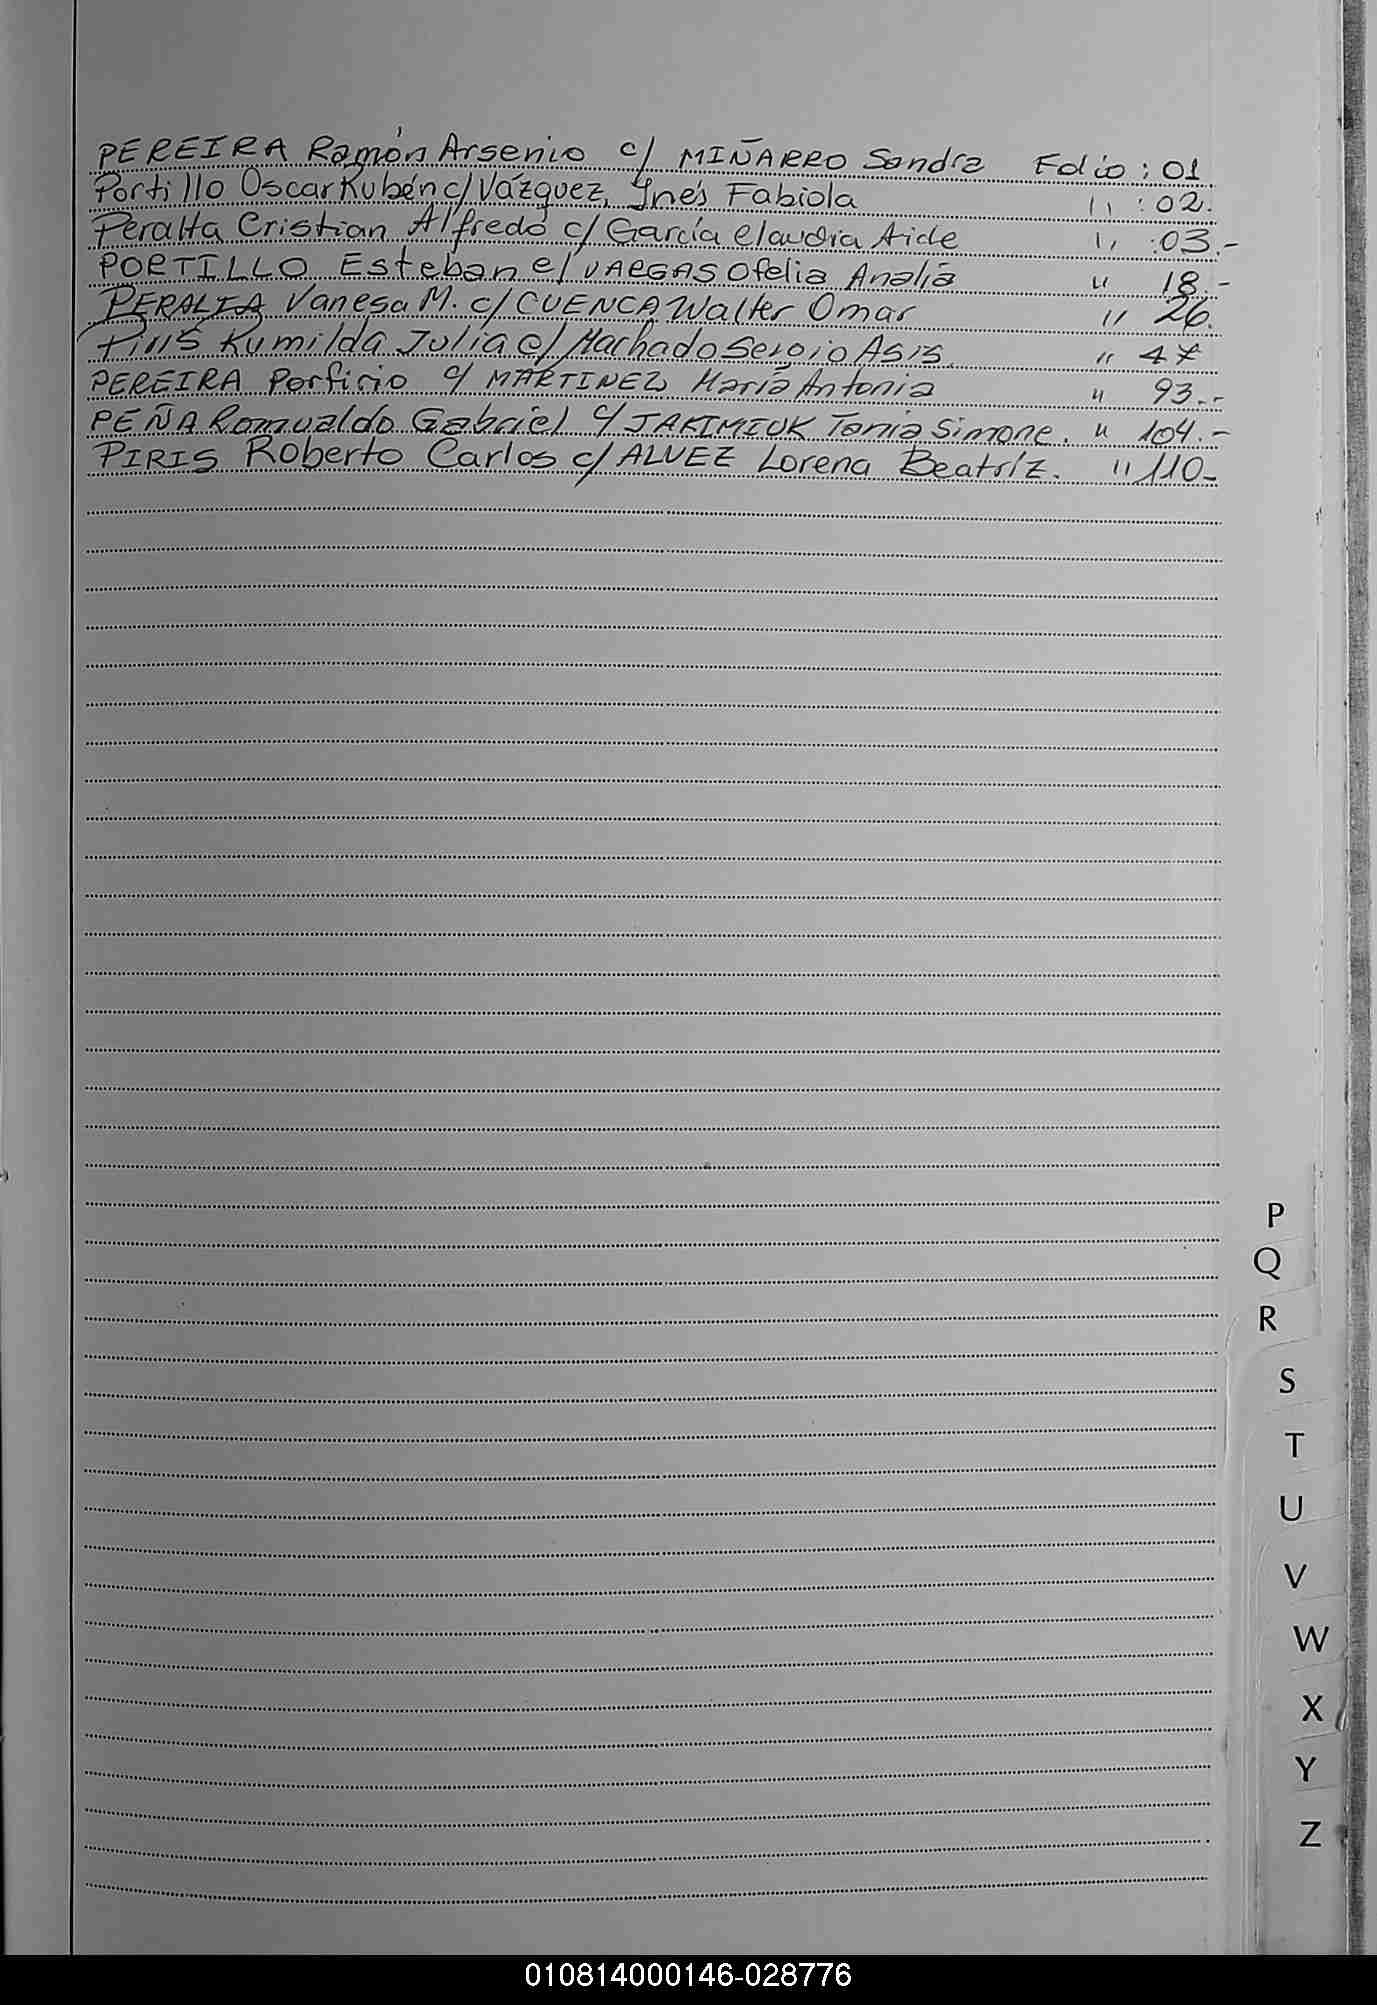 PEREIRA Ramón Arsenio c/ MIÑARRO Sandra Folio : 01
Portillo Oscar Rubén c/ Vázquez, Ynés Fabiola " : 02.
Peralta Cristian Alfredo c/ García Claudia Aide " : 03.-
PORTILLO Esteban c/ VARGAS Ofelia Analía " 18.-
PERALTA Vanesa M. c/ CUENCA Walter Omar " 26.
Piris Rumilda Julia c/ Machado Sergio Asis. " 47
PEREIRA Porfirio c/ MARTINEZ María Antonia " 93.-
PEÑA Romualdo Gabriel c/ JAKIMIUK Tania Simone. " 104.-
PIRIS Roberto Carlos c/ ALVEZ Lorena Beatríz. " 110-
P
Q
R
S
T
U
V
W
X
Y
Z
010814000146-028776